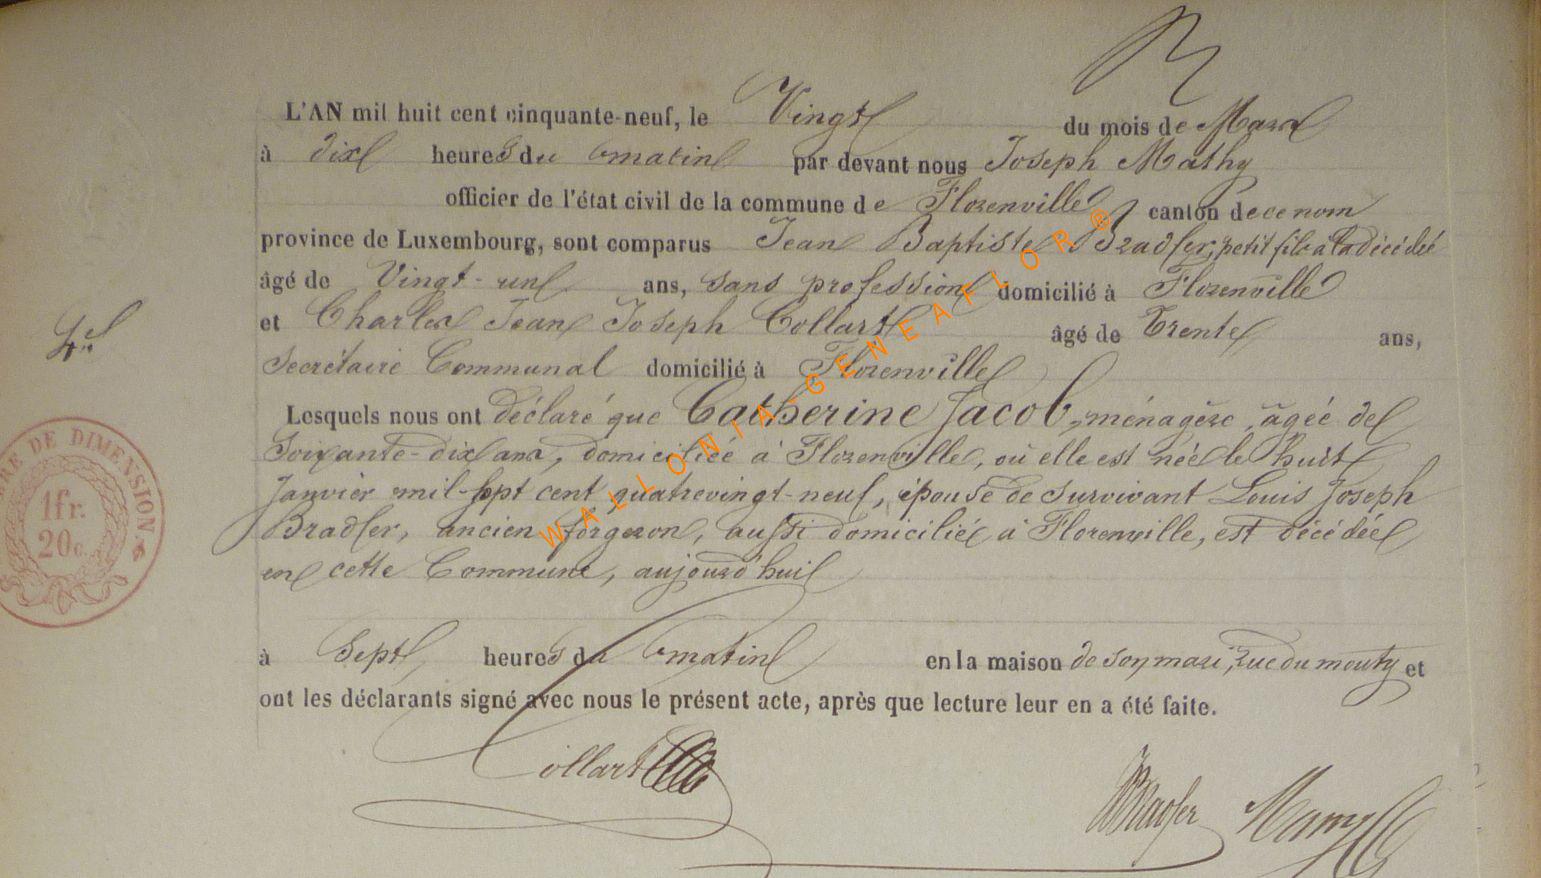 L'AN mil huit cent cinquante-neuf, le Vingt du mois de Mars
à dix heures du matin par devant nous Joseph Mathy
officier de l'état civil de la commune de Florenville canton de ce nom
province de Luxembourg, sont comparus Jean Baptiste Bradfer, petit fils à la décédée
âgé de Vingt-un ans, sans profession domicilié à Florenville
et Charles Jean Joseph Collart âgé de Trente ans,
Secrétaire Communal domicilié à Florenville
Lesquels nous ont déclaré que Catherine Jacob, ménagère, âgée de
Soixante-dix ans, domiciliée à Florenville, où elle est née le huit
Janvier mil-sept cent quatrevingt-neuf, épouse de survivant Louis Joseph
Bradfer, ancien forgeron, aussi domiciliée à Florenville, est décédée
en cette Commune, aujourd'hui
à Sept heures du matin en la maison de son mari, rue du mouty et
ont les déclarants signé avec nous le présent acte, après que lecture leur en a été faite.
Collart
JBBradfer Mathy
DE DIMENSION.
1 fr.
20 c.
WALLONIA-GENEAFLOR®